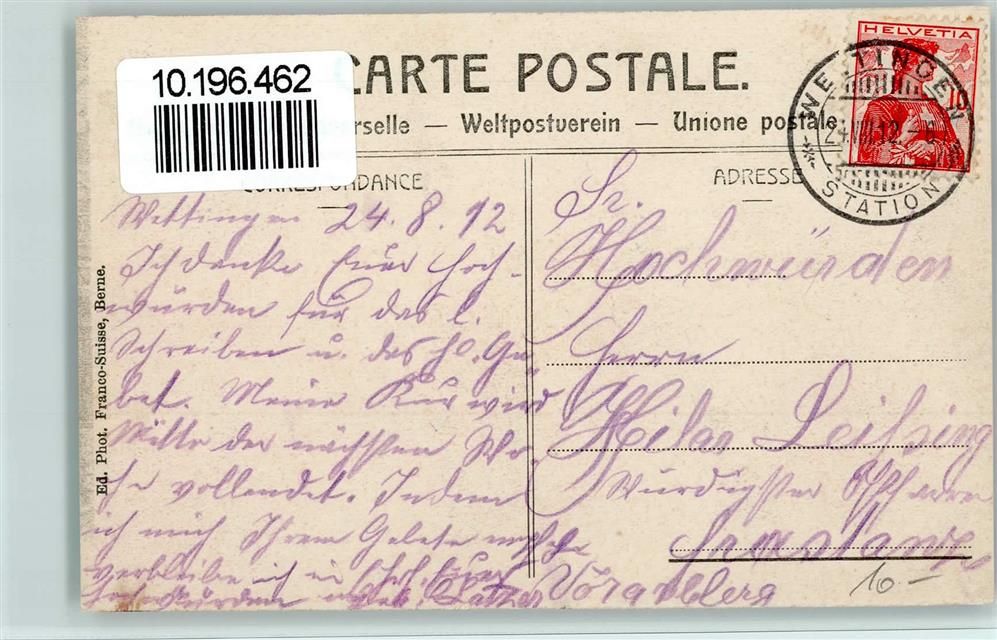 10.196.462
CARTE POSTALE.
erselle — Weltpostverein — Unione postale
CORRESPONDANCE
ADRESSE
HELVETIA
10
WETTINGEN
24.VIII.12
STATION
Ed. Phot. Franco-Suisse, Berne.
Wettingen 24. 8. 12
Ich danke Euer Hoch-
würden für das l.
Schreiben u. das hl. Ge
bet. Meine Kur wird
Mitte der nächsten Wo-
che vollendet. Indem
ich mich Ihrem Gebete
verbleibe ich in
Hochwürden
Sr.
Hochwürden
Herrn
Hilar
Würdigster
Frastanz
Vorarlberg
10.–